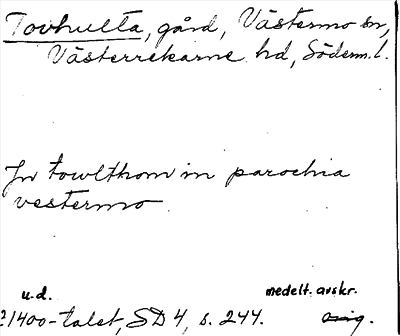 Tovhulta, gård, Västermo sn,
Västerrekarne hd, Söderm. l.
In towlthom in parochia
vestermo
u.d. medelt. avskr.
1400-talet, SD 4, s. 244. orig.